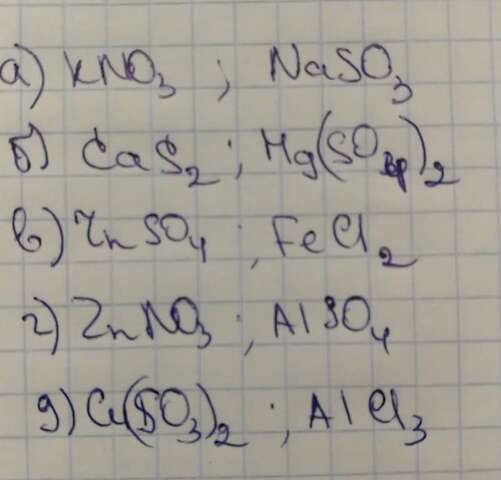 а) KNO₃ ; NaSO₃
б) CaS₂ ; Hg(SO₄)₂
в) ZnSO₄ ; FeCl₂
г) ZnNO₃ ; AlSO₄
д) Cu(SO₃)₂ ; AlCl₃